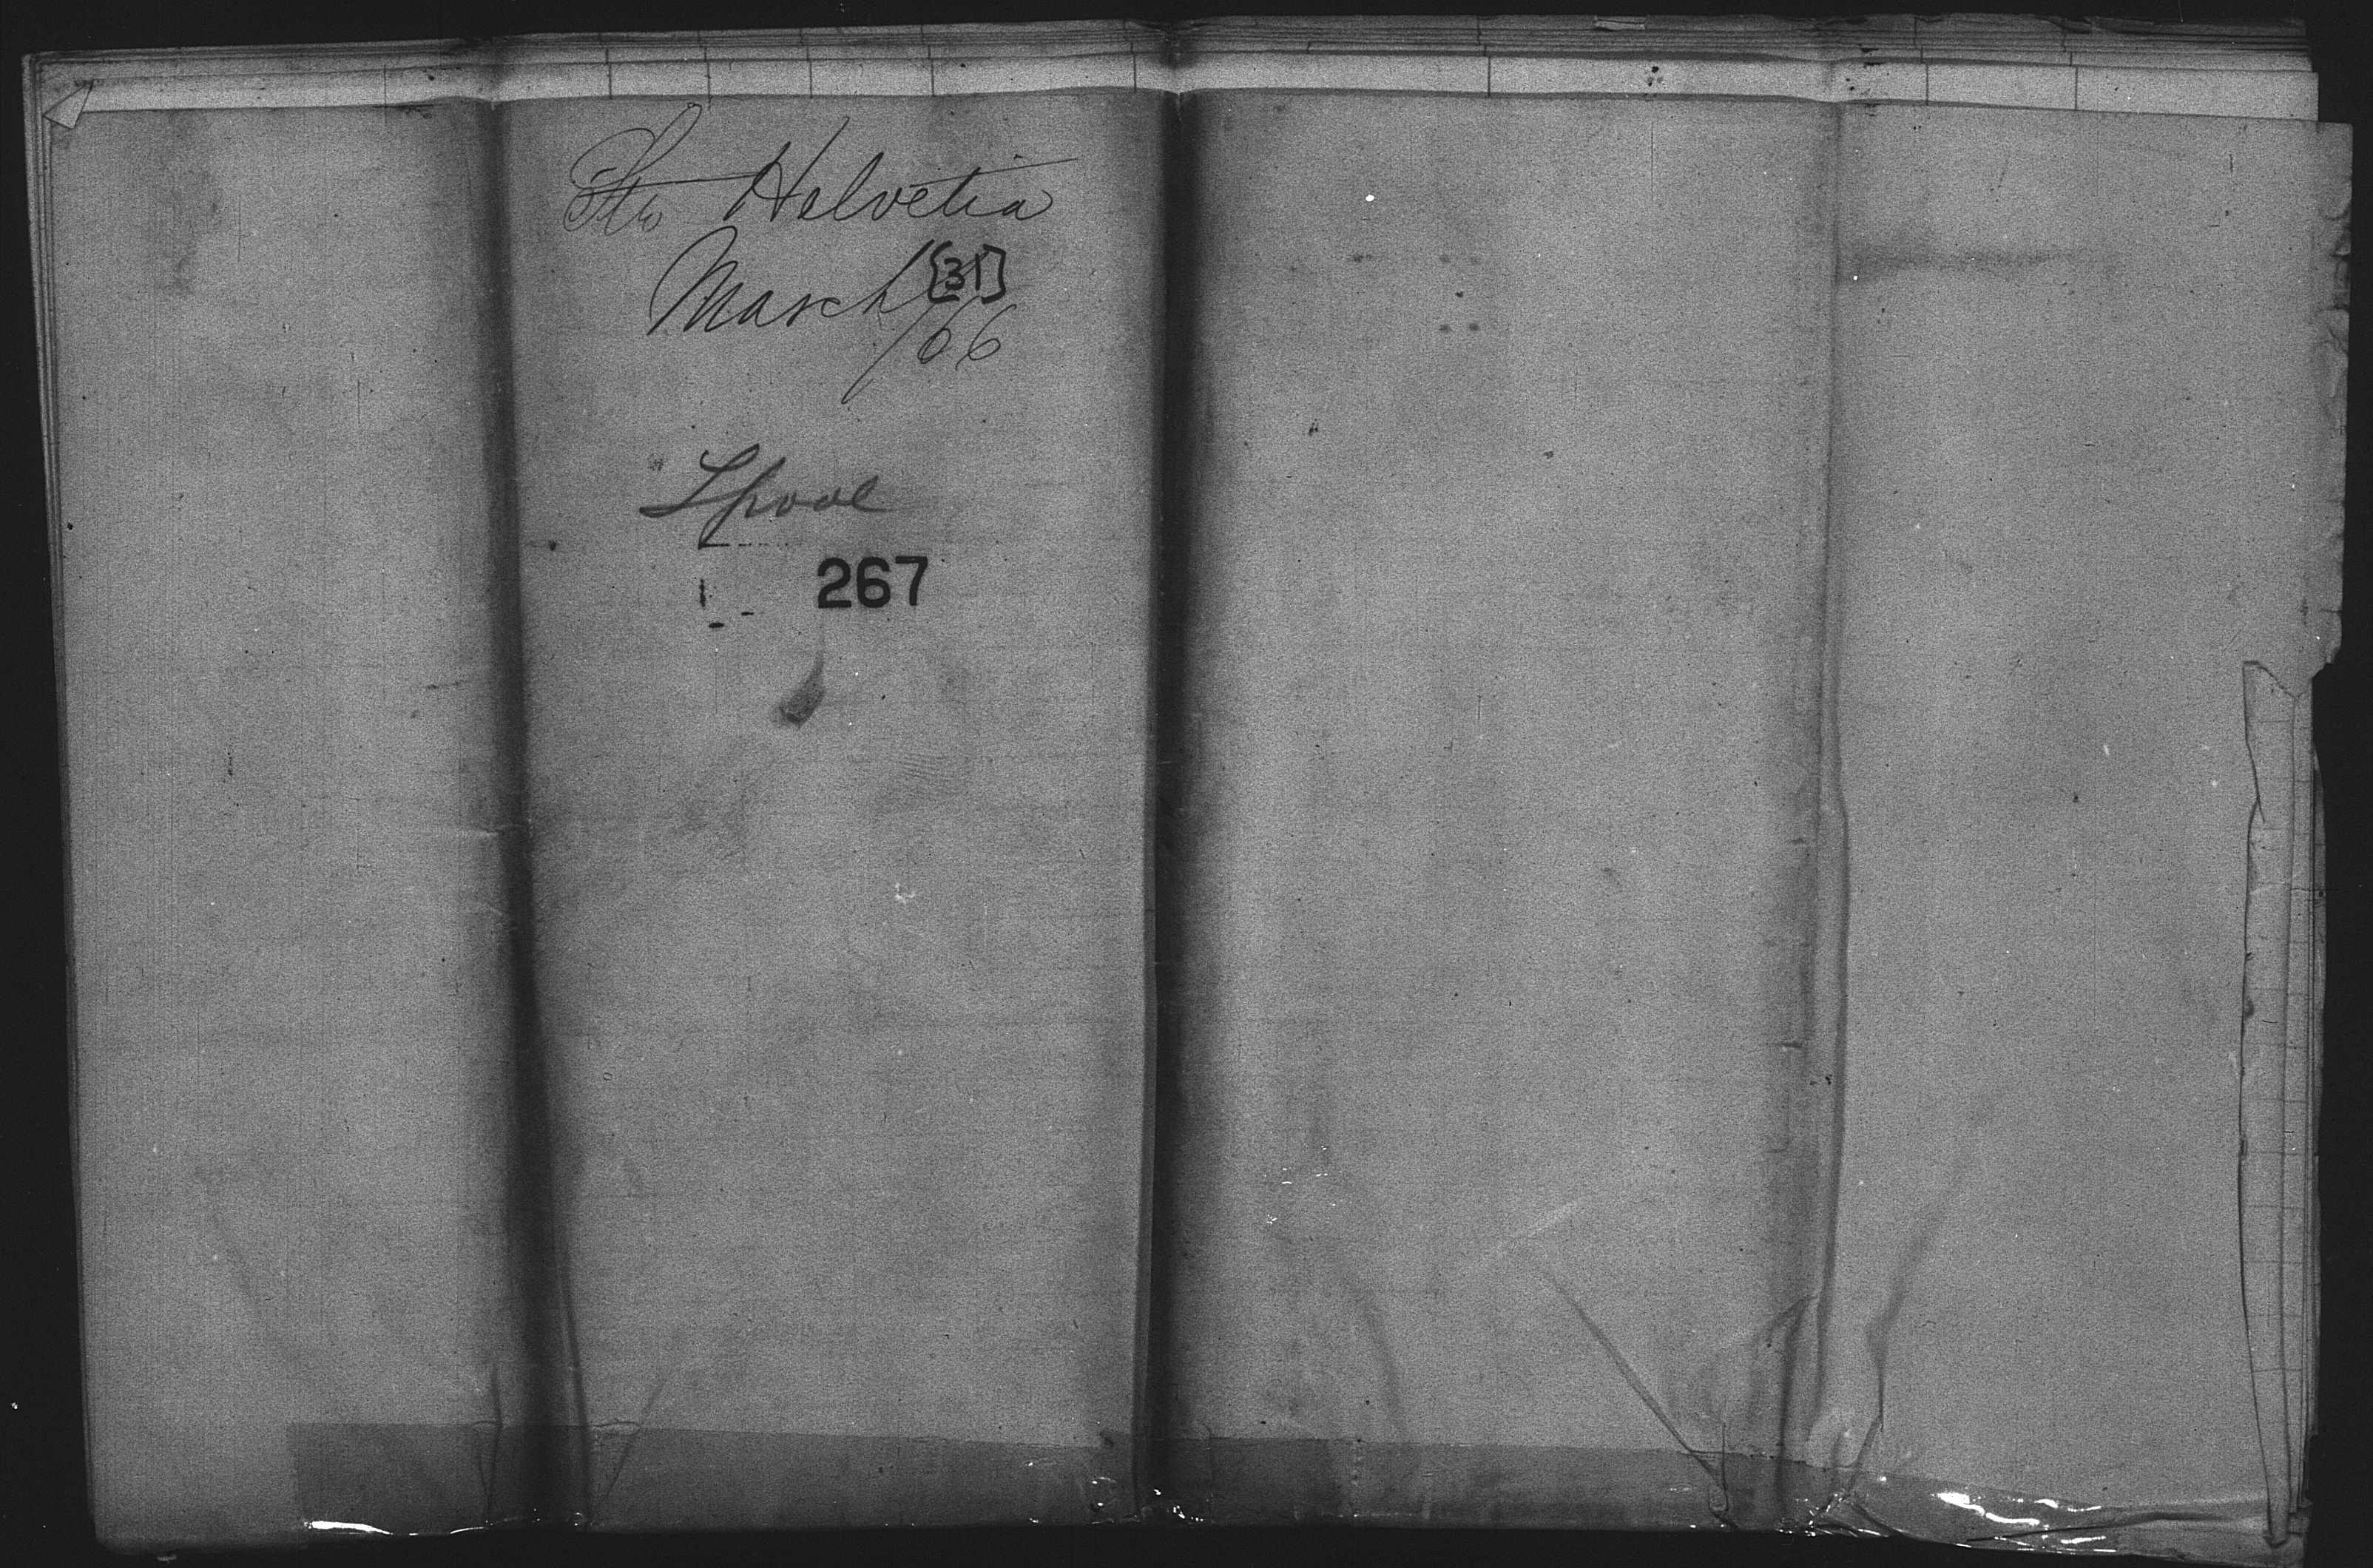 Str Helvetia
March [31]
/66
Lpool
267